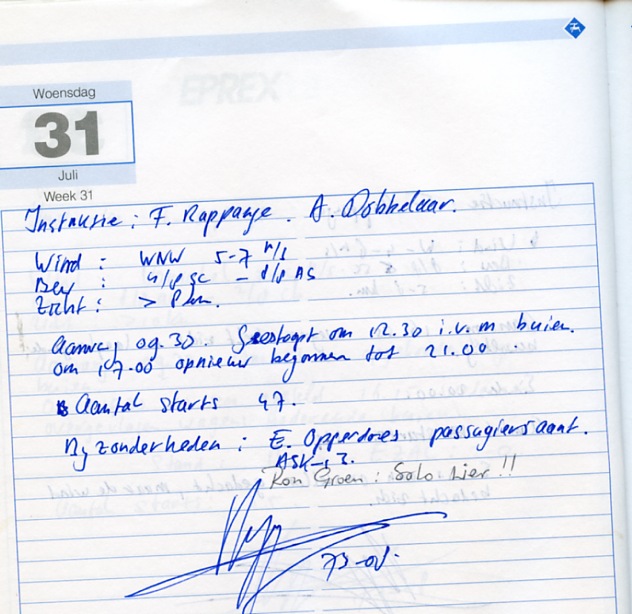 EPREX
Woensdag
31
Juli
Week 31
Instruktie : F. Rappange . A. Dobbelaar.
Wind : WNW 5-7 m/s
Bew : 4/8 SC - 1/8 AS
Zicht : > 8 km.
Aanw, 09.30. Gestopt om 12.30 i.v.m buien.
om 17.00 opnieuw begonnen tot 21.00
Aantal starts 47.
Byzonderheden : E. Opperdoes passagiersaant.
ASK-13.
Ron Groen : Solo Lier !!